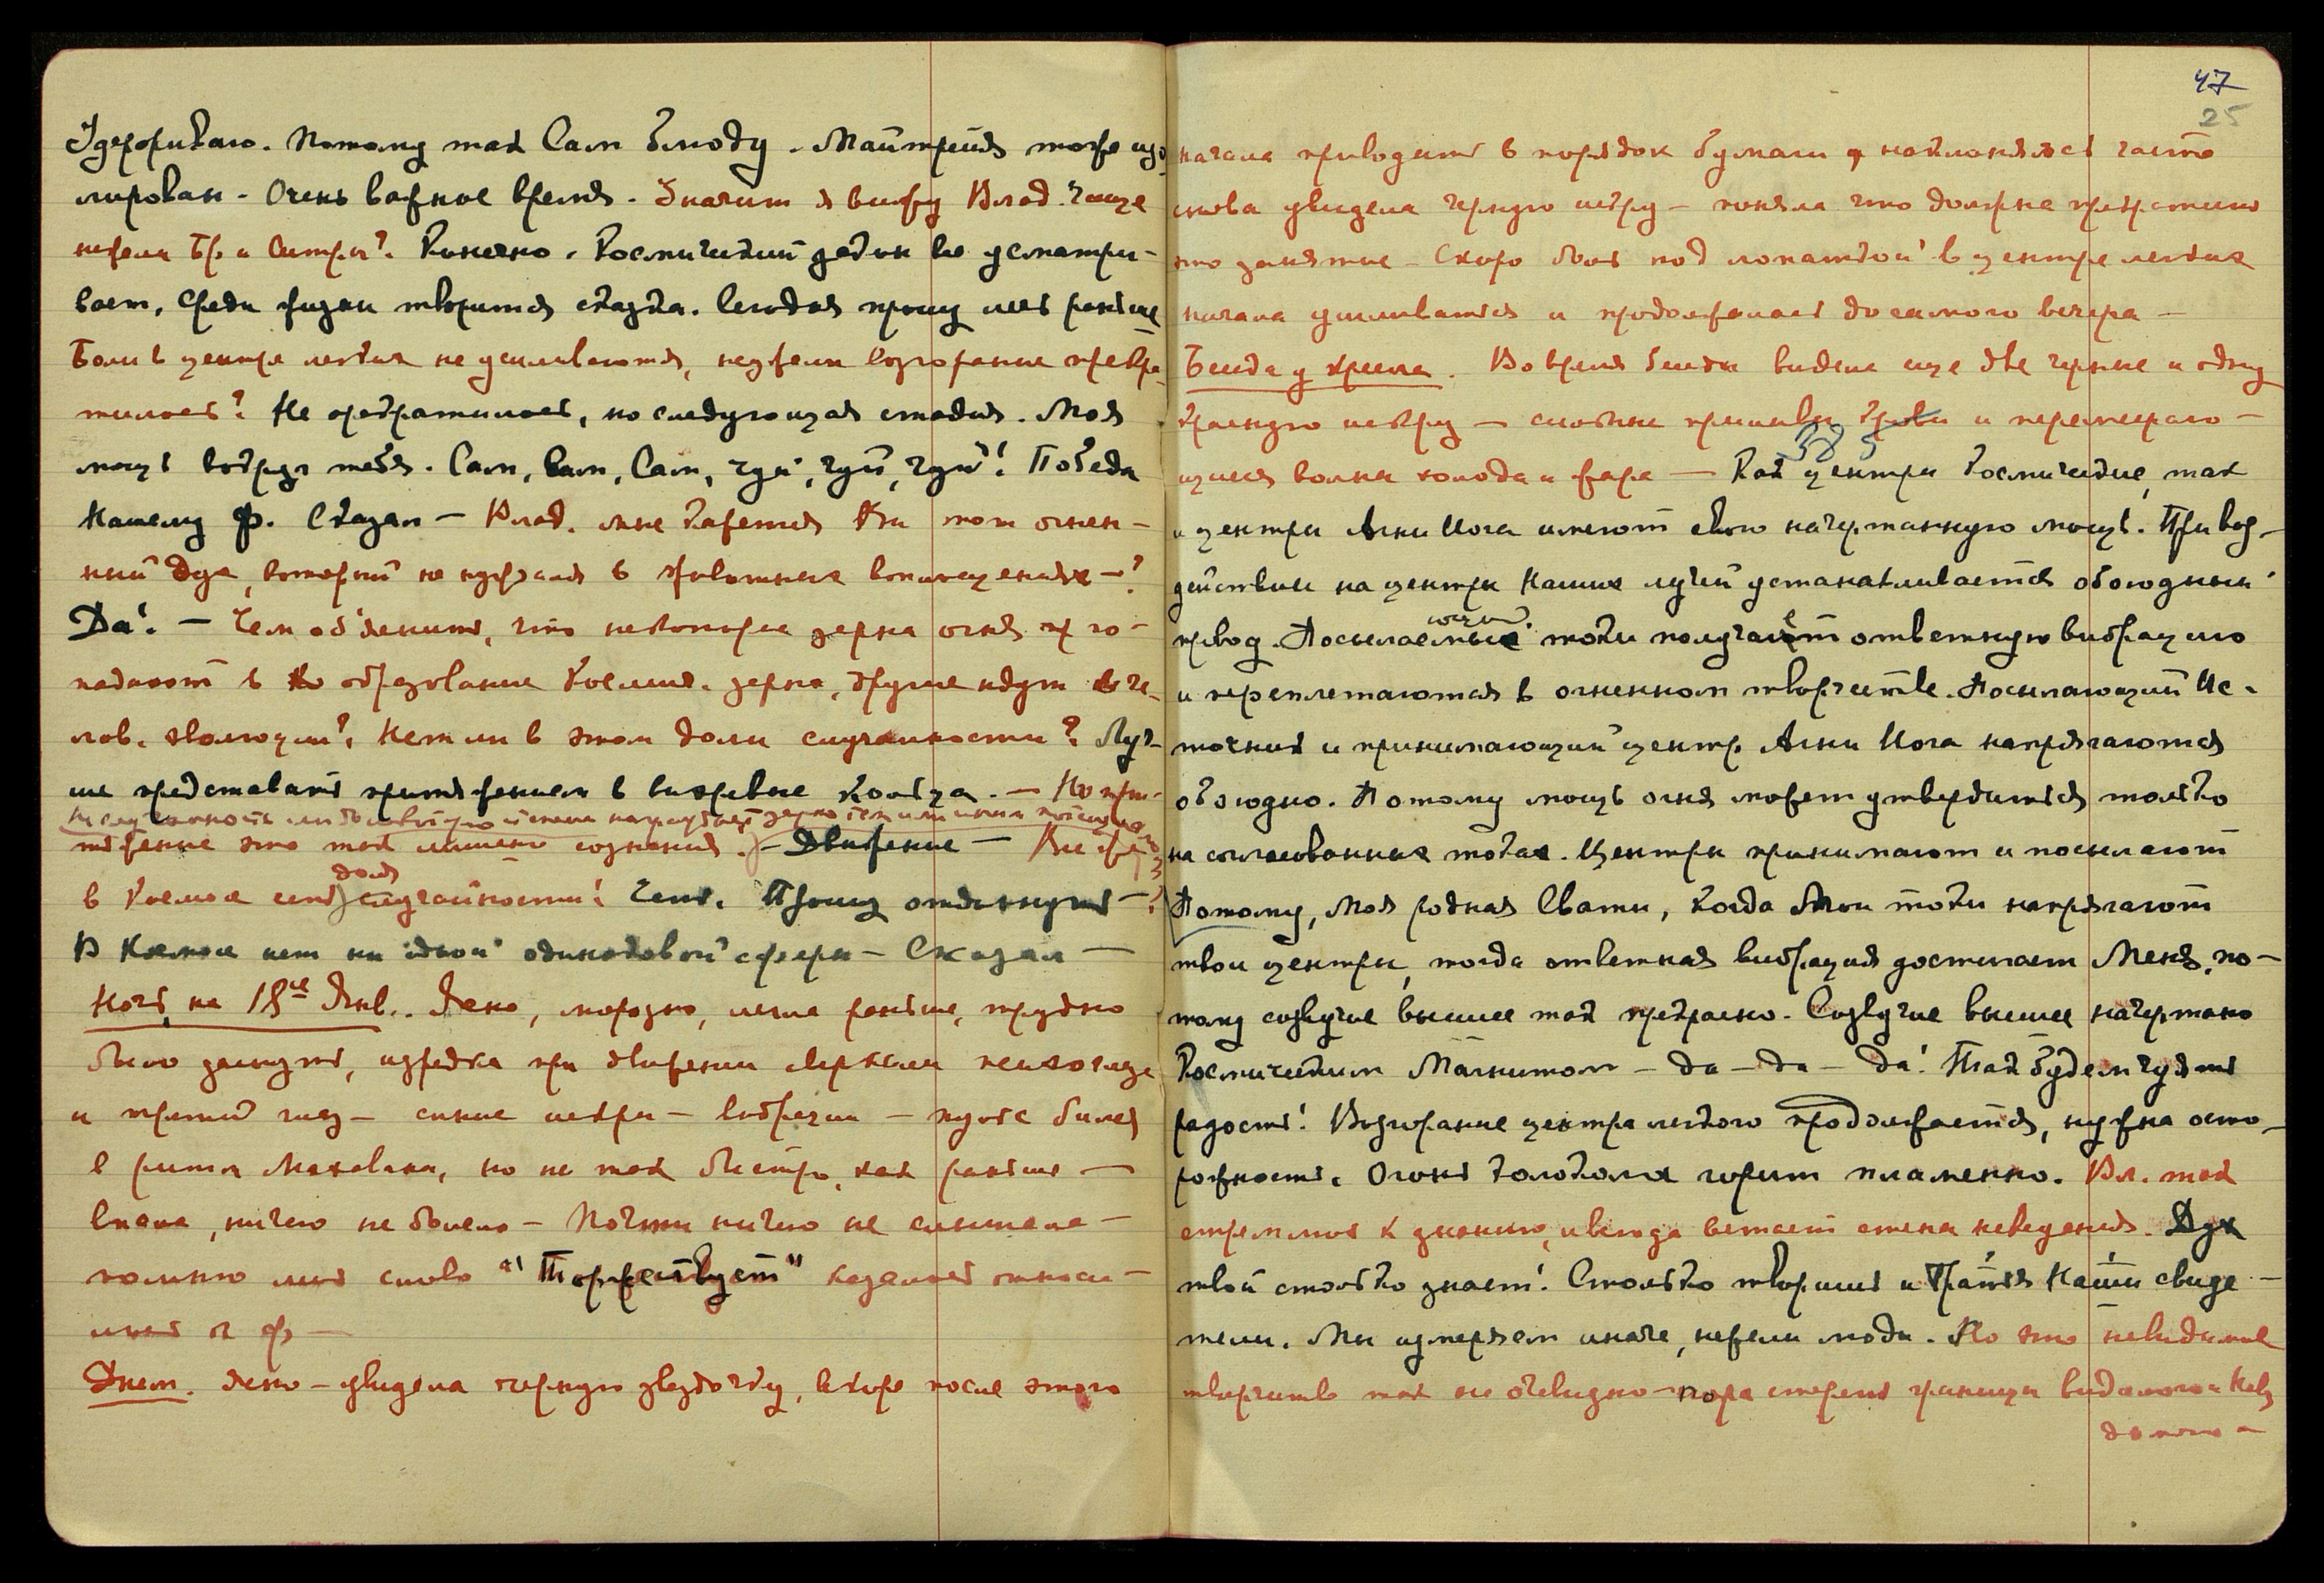 Удерживаю. Потому так Сам блюду. Майтрейя тоже изо-
лирован. Очень важное время. Значит я вижу Влад. чаще
нежели Бр. и Сестры? Конечно. Космический закон все усматри-
вает. Среди жизни творится сказка. Сегодня прошу лечь раньше
Боли в центре легких не усиливаются, неужели возгорание прекра-
тилось? Не прекратилось, но следующая стадия. Моя
мощь вокруг тебя. Сам, Сам, Сам, чуй, чуй, чуй! Победа
Нашему Ф. Сказал – Влад. мне кажется Вы тот огнен-
ный дух, который не нуждался в животных воплощениях –?
Да! – Чем объяснить, что некоторые зерна огня
падают в образование Космич. зерна, другие идут в че-
лов. эволюцию? Нет ли в этом доли случайности? Луч-
ше представить притяжением в вихревые кольца. – Но притя-
тяжение это так лишено сознания. – Движение – Все же
доля
в Космосе есть случайности! Есть. Прошу отдохнуть –
В Космосе нет ни одной одинаковой сферы – Сказал –
Ночь на 18ое Янв.. Ясно, морозно, легла раньше, трудно
было заснуть, изредка при движении сверкали
и третий глаз – синие искры – вибрации – пульс бился
в ритм Махавана, но не так быстро, как раньше –
спала, ничего не болело – Почти ничего не слышала –
помню лишь слово "Торжествует" казалось относи-
лось к Ф –
Днем. Ясно – увидела черную звездочку, вскоре после этого
47
25
начала приводить в порядок бумаги и наклоняясь часто
снова увидела черную искру – поняла что должна прекратить
это занятие – Скоро боль под лопаткой в центре легких
начала усиливаться и продолжалась до самого вечера –
Беседа у кресла. Во время беседы видела еще две черные и одну
красную искру – сильные приливы крови и перемежаю-
щиеся волны холода и жара – Как центры Космические, так
и центры Агни Йога имеют свою начертанную мощь. При воз-
действии на центры Наших лучей устанавливается обоюдный
привод. Посылаемые токи получают ответную вибрацию
и переплетаются в огненном творчестве. Посылающий Ис-
точник и принимающий центр Агни Йога напрягаются
обоюдно. Потому мощь огня может утвердиться только
на согласованных токах. Центры принимают и посылают
Потому, Моя родная Свати, когда Мои токи напрягают
твои центры, тогда ответная вибрация достигает Меня, по-
тому созвучие высшее так прекрасно. Созвучие высшее начертано
Космическим Магнитом – да – да – да! Так будем чуять
радость! Возгорание центра легкого продолжается, нужна осто-
рожность. Огонь колокола горит пламенно. Вл. так
стремлюсь к знанию, и всегда встает стена неведения. Дух
твой столько знает! Столько творишь и Братья Наши свиде-
тели. Мы измеряем иначе, нежели люди. Но это невидимое
творчество так не очевидно – пора стереть границы видимого и неви-
димого –